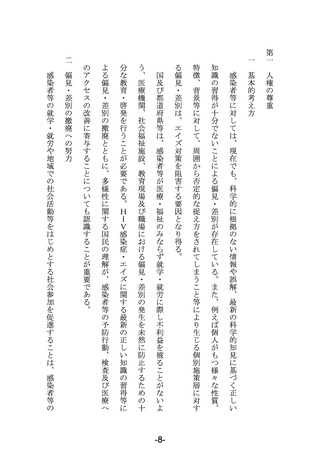 第一　人権の尊重
一　基本的考え方
感染者等に対しては、現在でも、科学的に根拠のない情報や誤解、最新の科学的知見に基づく正しい
知識の習得が十分でないことによる偏見・差別が存在している。また、例えば個人がもつ様々な性質、
特徴、背景等に対して、周囲から否定的な捉え方をされてしまうこと等により生じる個別施策層に対す
る偏見・差別は、エイズ対策を阻害する要因となり得る。
国及び都道府県等は、感染者等が医療・福祉のみならず就学・就労に際し不利益を被ることがないよ
う、医療機関、社会福祉施設、教育現場及び職場における偏見・差別の発生を未然に防止するための十
分な教育・啓発を行うことが必要である。ＨＩＶ感染症・エイズに関する最新の正しい知識の習得等に
よる偏見・差別の撤廃とともに、多様性に関する国民の理解が、感染者等の予防行動、検査及び医療へ
のアクセスの改善に寄与することについても認識することが重要である。
二　偏見・差別の撤廃への努力
感染者等の就学・就労や地域での社会活動等をはじめとする社会参加を促進することは、感染者等の
-8-